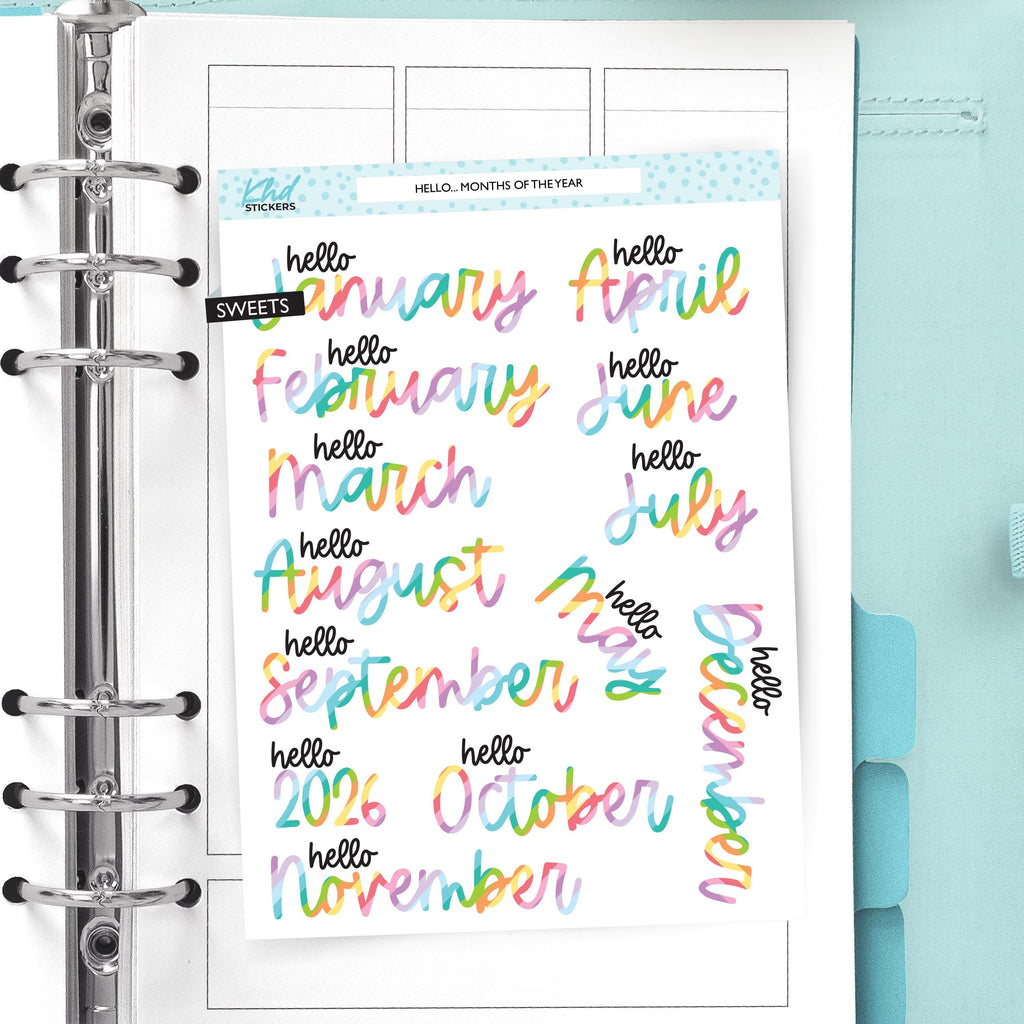 Khd
STICKERS
HELLO... MONTHS OF THE YEAR
hello
January
SWEETS
hello
April
hello
February
hello
June
hello
March
hello
July
hello
August
hello
May
hello
September
hello
December
hello
2026
hello
October
hello
November